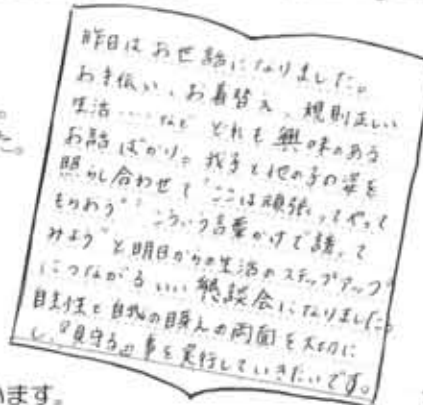 昨日はお世話になりました。
お手伝い、お着替え、規則正しい
生活....など どれも興味のある
お話ばかり。我子と他の子の姿を
照らし合わせて"ここは頑張ってやって
もらおう" "こういう言葉かけで誘って
みよう"と明日からの生活のステップアップ
につながるいい懇談会になりました。
自主性と自我の 両面を大切に
し、『見守る』事を実行していきたいです。
。
た。
います。